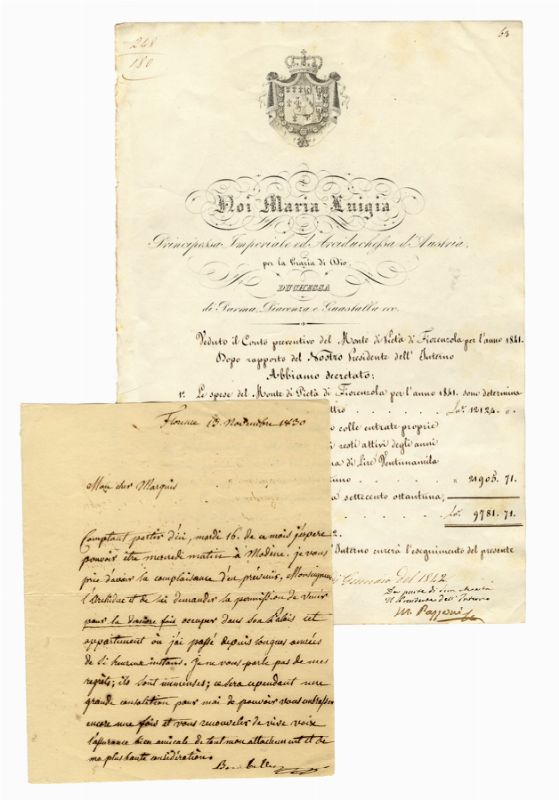 248
180
63
Noi Maria Luigia
Principessa Imperiale ed Arciduchessa d'Austria,
per la Grazia di Dio,
DUCHESSA
di Parma, Piacenza e Guastalla ecc.
Veduto il Conto preventivo del Monte di Pietà di Fiorenzola per l'anno 1841.
Dopo rapporto del Nostro Presidente dell'Interno
Abbiamo decretato;
1.° Le spese del Monte di Pietà di Fiorenzola per l'anno 1841. sono determina
ttro 12124. 0.
colle entrate proprie
i resti attivi degli anni
a di Lire Ventunamila
ino " 21905. 71.
a settecento ottantuna,
9781. 71.
2.
l'Interno curerà l'eseguimento del presente
Gennaio del 1842
Il Presidente dell'Interno
Florence 13. Novembre 1830
Mon cher Marquis
Comptant partir d'ici, mardi 16. de ce mois j'espère
pouvoir être mercredi matin à Modène. je vous
prie d'avoir la complaisance d'en prévenir, Monseigneur
l'Archiduc et de lui demander la permission de venir
pour la dernière fois occuper dans son Palais cet
appartement où j'ai passé depuis longues années
de si heureux instans. je ne vous parle pas de mes
regrets; ils sont immenses; ce sera cependant une
grande consolation pour moi de pouvoir vous embrasser
encore une fois et vous renouveler de vive voix
l'assurance bien amicale de tout mon attachement et de
ma plus haute considération.
Bombelles